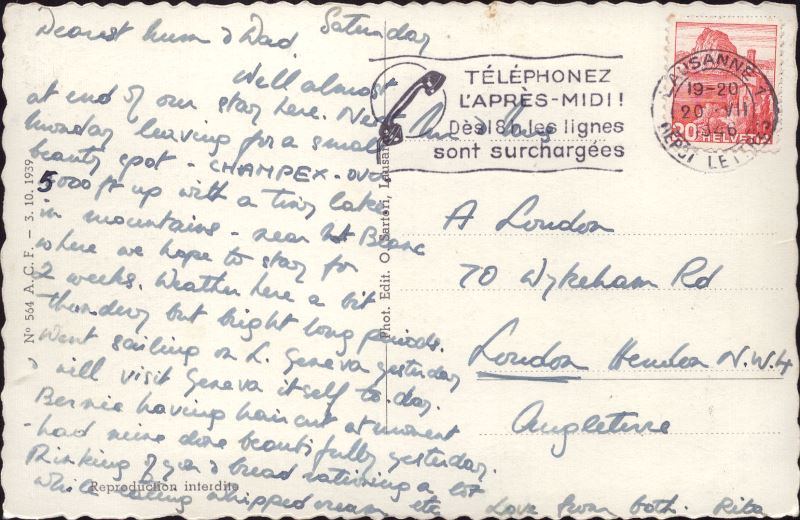 Dearest Mum & Dad, Saturday
Well almost
at end of our stay here. Next
Monday leaving for a small
beauty spot - CHAMPEX - over
5000 ft up with a tiny lake
in mountains - near Mt Blanc
where we hope to stay for
2 weeks. Weather here a bit
thundery but bright long periods.
Went sailing on L. Geneva yesterday
& will visit Geneva itself to-day.
Bernie having haircut at moment
- had mine done beautifully yesterday.
Thinking of you & bread rationing a lot
while eating whipped cream etc Love from both. Rita
Reproduction interdite
No 564 A.C.F. — 3. 10. 1939
Phot. Edit. O. Sartori, Lausanne
TÉLÉPHONEZ
L'APRÈS-MIDI!
Dès 18h les lignes
sont surchargées
LAUSANNE 1
19-20
20 VII
1946
20 HELVETIA
A London
70 Wykeham Rd
London Hendon N.W.4
Angleterre